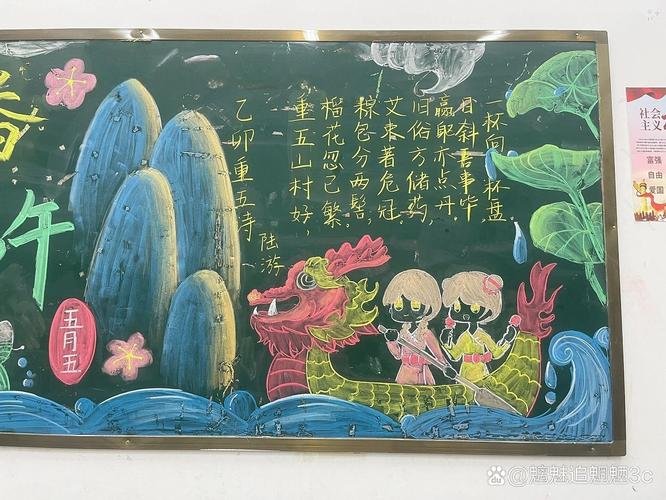 午
五月五
乙卯重五诗
陆游
重五山村好，
榴花忽已繁。
粽包分两髻，
艾束著危冠。
旧俗方储药，
亦点丹，
斜吾事毕
一杯向杯盘
社会
主义
富强
自由
爱国
@魑魅追魍魉3c